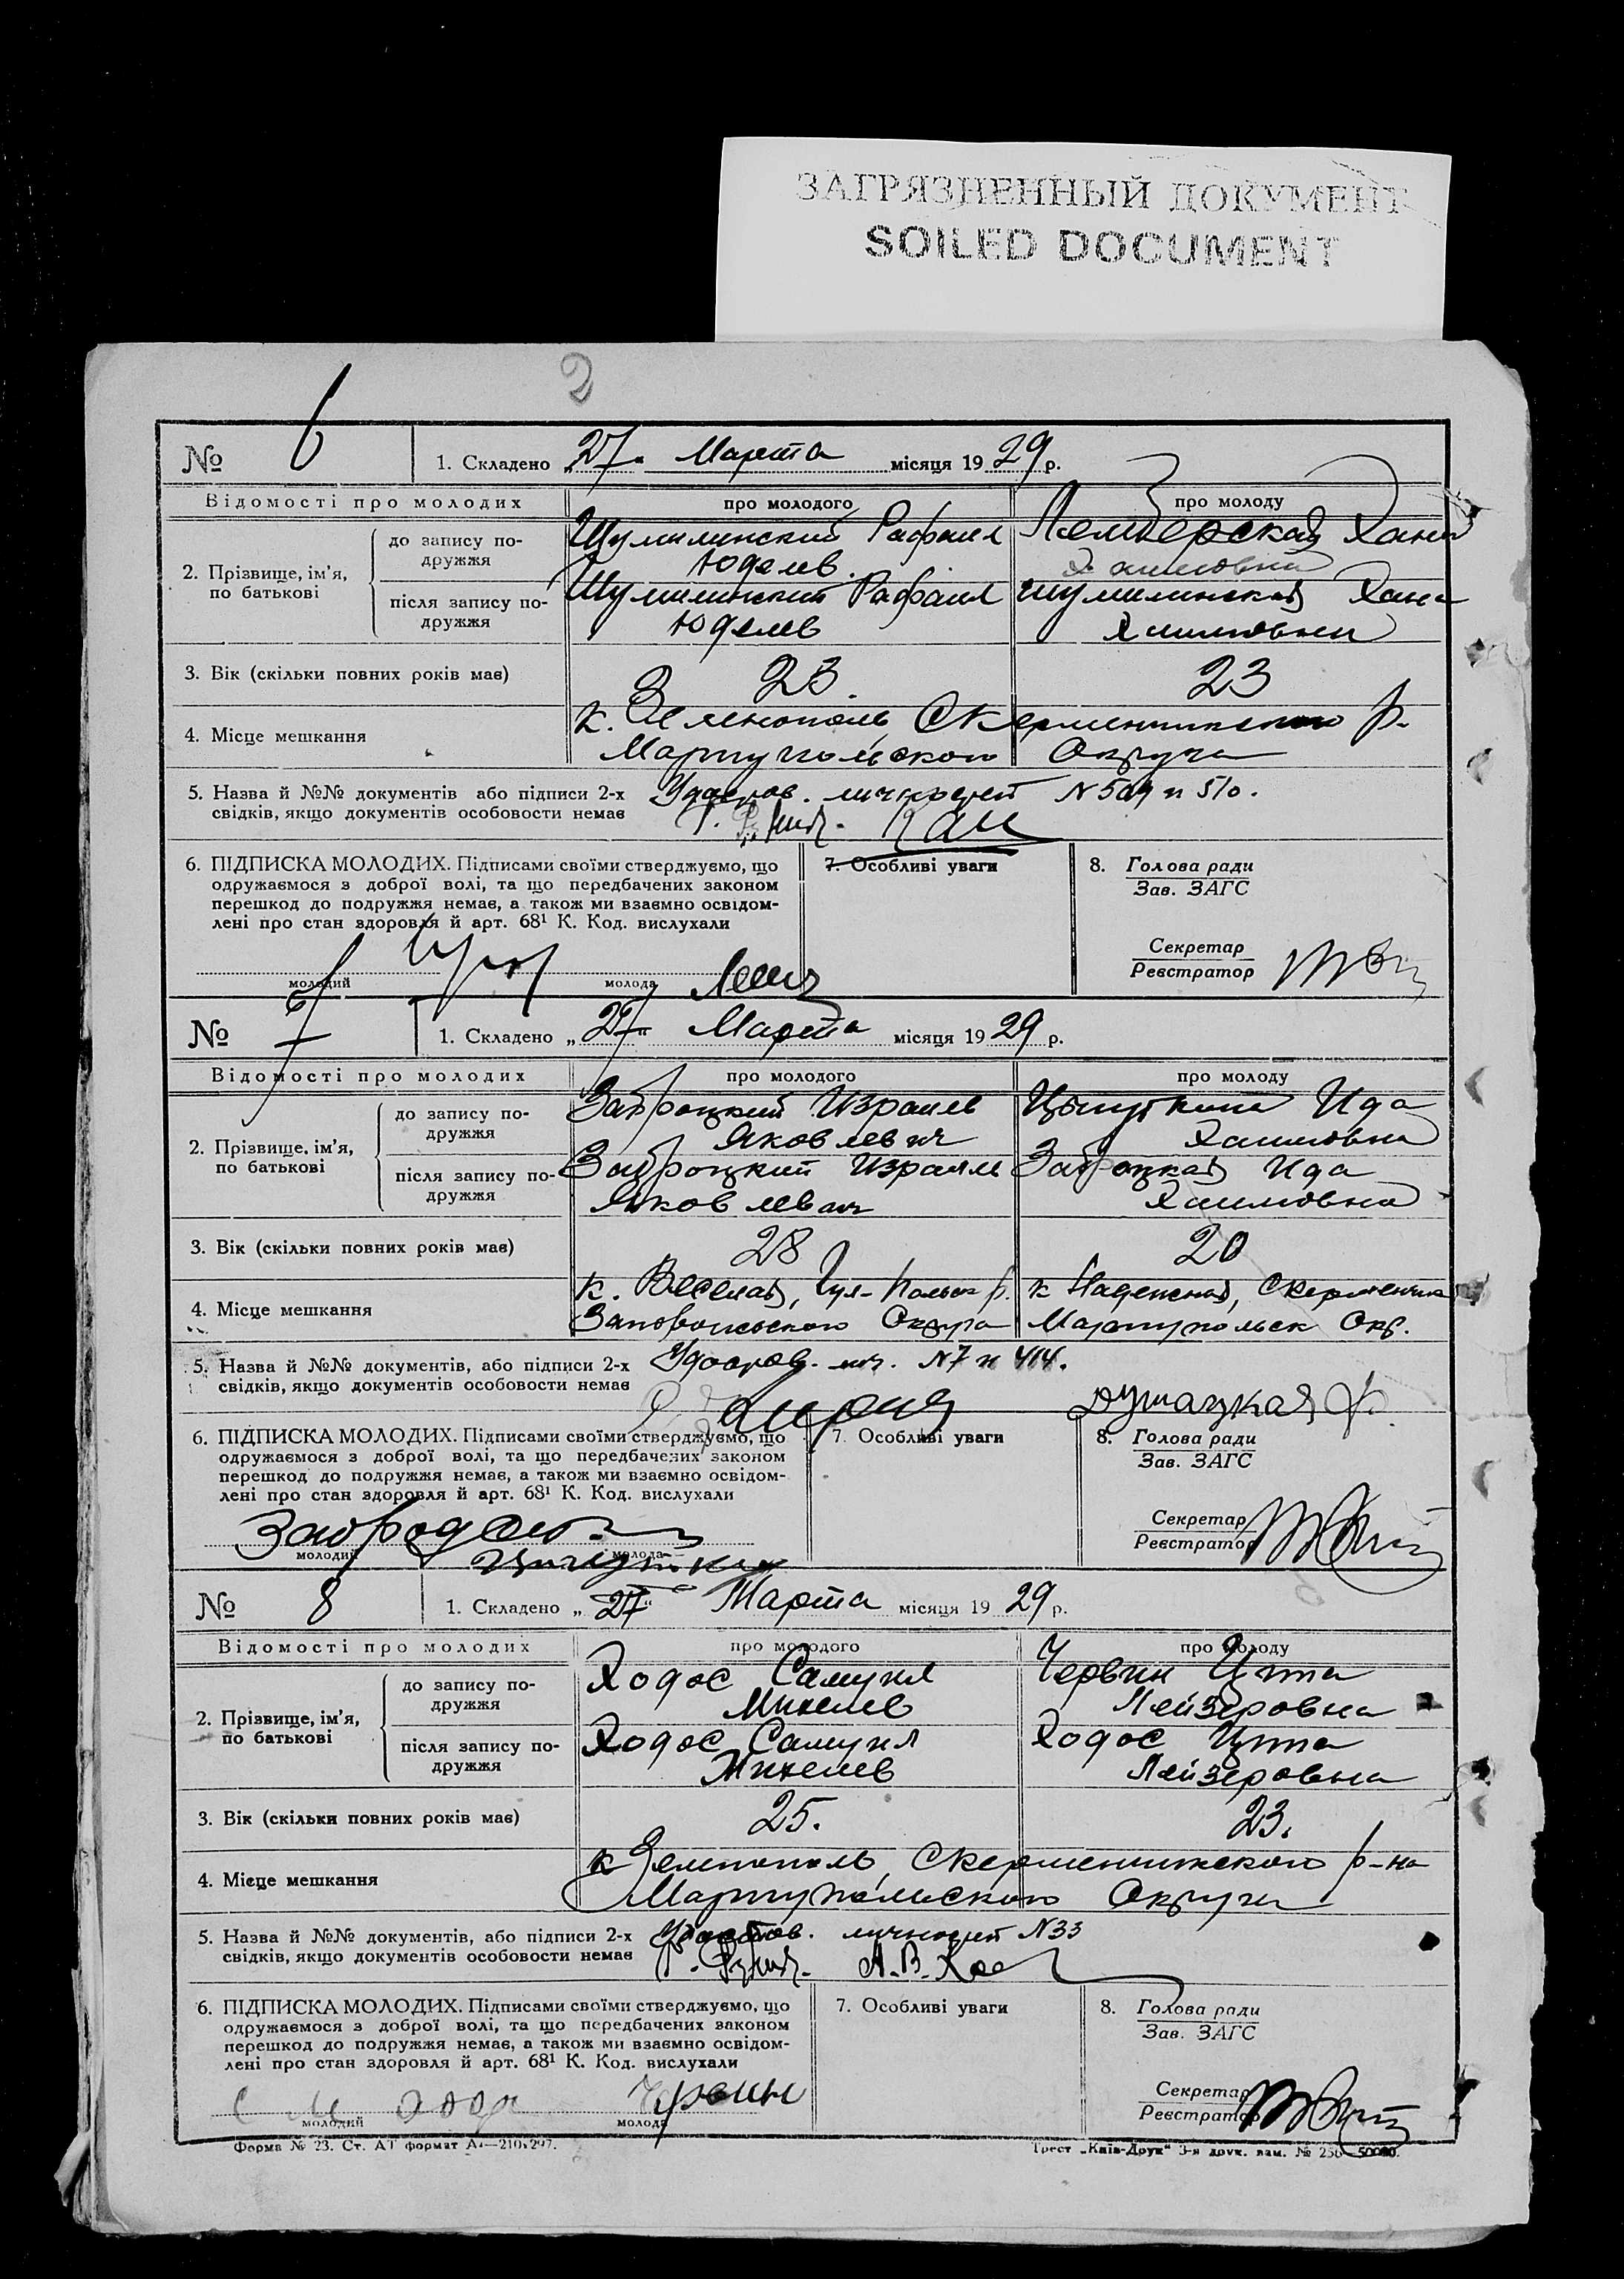 ЗАГРЯЗНЕННЫЙ ДОКУМЕНТ
SOILED DOCUMENT
2
№ 6 1. Складено „27“ Марта місяця 1929 р.
Відомості про молодих про молодого про молоду
2. Прізвище, ім'я, по батькові
до запису подружжя Шумилинский Рафаил Юделев Лемберская Хана Хаимовна
після запису подружжя Шумилинский Рафаил Юделев Шумилинская Хана Хаимовна
3. Вік (скільки повних років має) 23. 23
4. Місце мешкання к. Зеленополь, Скерменчикского р.
Мариупольского Округа
5. Назва й №№ документів або підписи 2-х N 509 и 510.
свідків, якщо документів особовости немає
6. ПІДПИСКА МОЛОДИХ. Підписами своїми стверджуємо, що 7. Особливі уваги 8. Голова ради
одружаємося з доброї волі, та що передбачених законом Зав. ЗАГС
перешкод до подружжя немає, а також ми взаємно освідом-
лені про стан здоровля й арт. 68¹ К. Код. вислухали
Секретар
Реєстратор
молодий молода
№ 7 1. Складено „27“ Марта місяця 1929 р.
Відомості про молодих про молодого про молоду
2. Прізвище, ім'я, по батькові
до запису подружжя Заброцкий Израиль Яковлевич Ида Хаимовна
після запису подружжя Заброцкий Израиль Яковлевич Заброцкая Ида Хаимовна
3. Вік (скільки повних років має) 28 20
4. Місце мешкання к. Веселая, Гул-Польск р. к Надежная, Скерменчик
Запорожского Округа Мариупольск Окр.
5. Назва й №№ документів, або підписи 2-х Удостов. лич. N 7 и 414.
свідків, якщо документів особовости немає Душацкая Ф.
6. ПІДПИСКА МОЛОДИХ. Підписами своїми стверджуємо, що 7. Особливі уваги 8. Голова ради
одружаємося з доброї волі, та що передбачених законом Зав. ЗАГС
перешкод до подружжя немає, а також ми взаємно освідом-
лені про стан здоровля й арт. 68¹ К. Код. вислухали
Секретар
Реєстратор
молодий молода
№ 8 1. Складено „27“ Марта місяця 1929 р.
Відомості про молодих про молодого про молоду
2. Прізвище, ім'я, по батькові
до запису подружжя Ходос Самуил Михелев Червин Ципа Лейзеровна
після запису подружжя Ходос Самуил Михелев Ходос Ципа Лейзеровна
3. Вік (скільки повних років має) 25. 23.
4. Місце мешкання к Зеленополь, Скерменчикского р-на
Мариупольского Округа
5. Назва й №№ документів, або підписи 2-х Удостов. личностей N 33
свідків, якщо документів особовости немає
6. ПІДПИСКА МОЛОДИХ. Підписами своїми стверджуємо, що 7. Особливі уваги 8. Голова ради
одружаємося з доброї волі, та що передбачених законом Зав. ЗАГС
перешкод до подружжя немає, а також ми взаємно освідом-
лені про стан здоровля й арт. 68¹ К. Код. вислухали
Секретар
Реєстратор
Червин
молодий молода
Форма № 23. Ст. АТ формат А4—210×297. Трест „Київ-Друк“ 3-я друк. зам. № 256 50000.